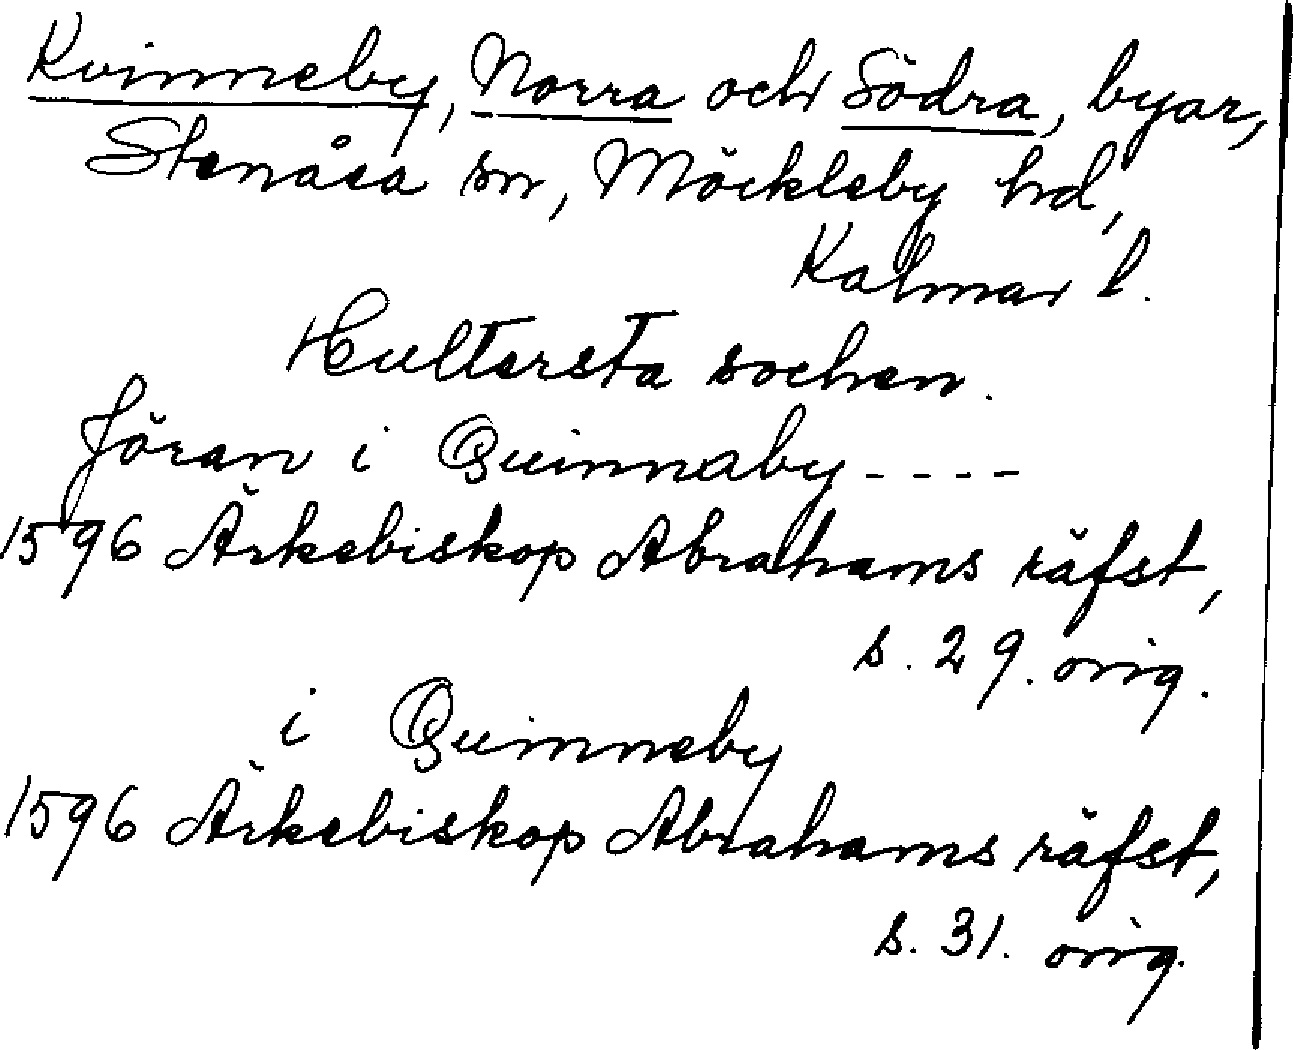 Kvinneby, Norra och Södra, byar,
Stenåsa sn, Möckleby hd,
Kalmar l.
Hultersta sochen.
Jöran i Quinnaby ----
1596 Ärkebiskop Abrahams räfst,
s. 29. orig.
i Quinneby
1596 Ärkebiskop Abrahams räfst,
s. 31. orig.